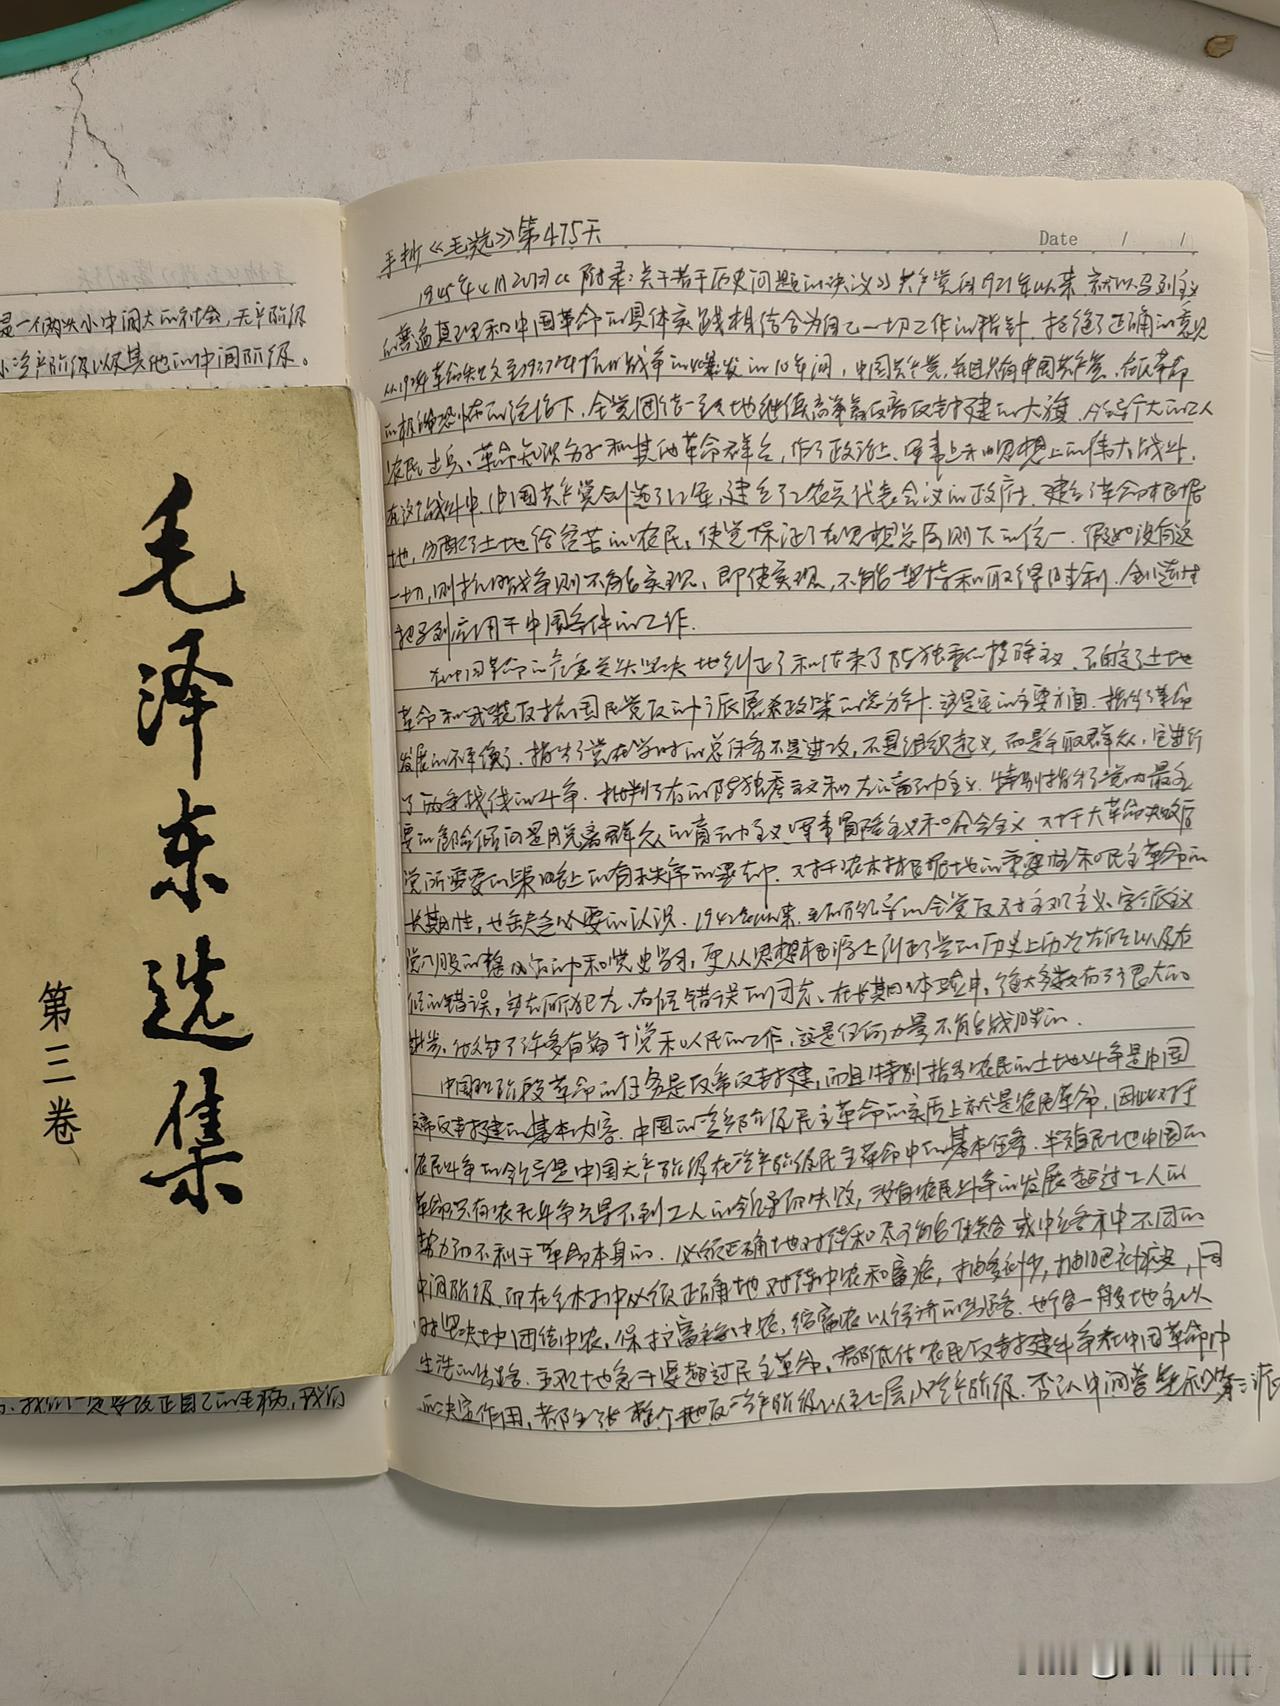 是一个两头小中间大的社会,无产阶级
小资产阶级以及其他的中间阶级。
毛泽东选集
第三卷
我们一定要改正自己的毛病,我们
手抄《毛选》第475天
Date / /
1945年4月20日《附录:关于若干历史问题的决议》共产党自1921年以来,就以马列主义
的普遍真理和中国革命的具体实践相结合为自己一切工作的指针,
革命失败至1937年抗日战争的爆发的10年间,中国共产党,并且只有中国共产党,在反革命
的极端恐怖的统治下,全党团结一致地继续高举着反帝反封建的大旗,领导广大的工人
农民、士兵、革命知识分子和其他革命群众,作了政治上、军事上和思想上的伟大战斗,
在这个战斗中,中国共产党创造了红军,建立了工农兵代表会议的政府,建立革命根据
地,分配了土地给贫苦的农民,使党保证了在思想总原则下的统一,假如没有这
一切,则抗日战争则不能实现,即使实现,不能坚持和取得胜利,创造性
把马列应用于中国条件的工作.
在中国革命的危急关头坚决地纠正了和结束了陈独秀的投降主义,确定了土地
革命和武装反抗国民党反动派屠杀政策的总方针,这是它的主要方面,指出了革命
发展的不平衡了,指出了党在当时的总任务不是进攻,不是组织起义,而是争取群众,它进行
了两条战线的斗争,批判了右的陈独秀主义和左的盲动主义,特别指出了党内最主
要的危险倾向是脱离群众的盲动主义、军事冒险主义和命令主义,对于大革命失败后
党所需要的策略上的有秩序的退却,对于农村根据地的重要性和民主革命的
长期性,也缺乏必要的认识.1942年以来,毛所领导的全党反对主观主义、宗派主义
党八股的整风运动和党史学习,更从思想根源上纠正了党的历史上历次左倾以及右
倾的错误,过去所犯左、右倾错误的同志,在长期体验中,绝大多数有了很大的
进步,做过了许多有益于党和人民的工作,这是任何力量不能战胜的.
中国现阶段革命的任务是反帝反封建,而且特别指出农民的土地斗争是中国
反帝反封建的基本内容,中国的资产阶级民主革命的实质上就是农民革命,因此对于
农民斗争的领导是中国无产阶级在资产阶级民主革命中的基本任务.半殖民地中国的
革命,只有农民斗争得不到工人的领导而失败,没有农民斗争的发展超过工人的
势力而不利于革命本身的.必须正确地对待和尽可能联合或中立各种不同的
中间阶级,而在乡村中必须正确地对待中农和富农,抽多补少,抽肥补瘦,同
时坚决地团结中农,保护富裕中农,给富农以经济的出路,也给一般地主以
生活的出路.主观地急于要超过民主革命,都低估农民反封建斗争在中国革命中
的决定作用,都主张整个地反资产阶级以至上层小资产阶级,否认中间营垒和第三派